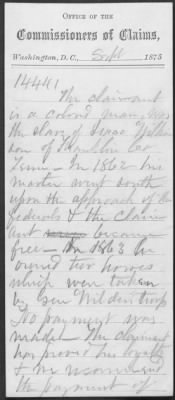 OFFICE OF THE
Commissioners of Claims,
Washington, D.C., Sept 1875
14441
The claimant
is a colored man, was
the slave of Isaac
son of Hamilton Co
Tenn - In 1862 his
master went south
upon the approach of the
federals & the claim
ant became
free - In 1863 he
owned two horses
which were taken
by Gen Wilder's troops
No payment was
made. The claimant
has proved his loyalty
& we recommend
the payment of